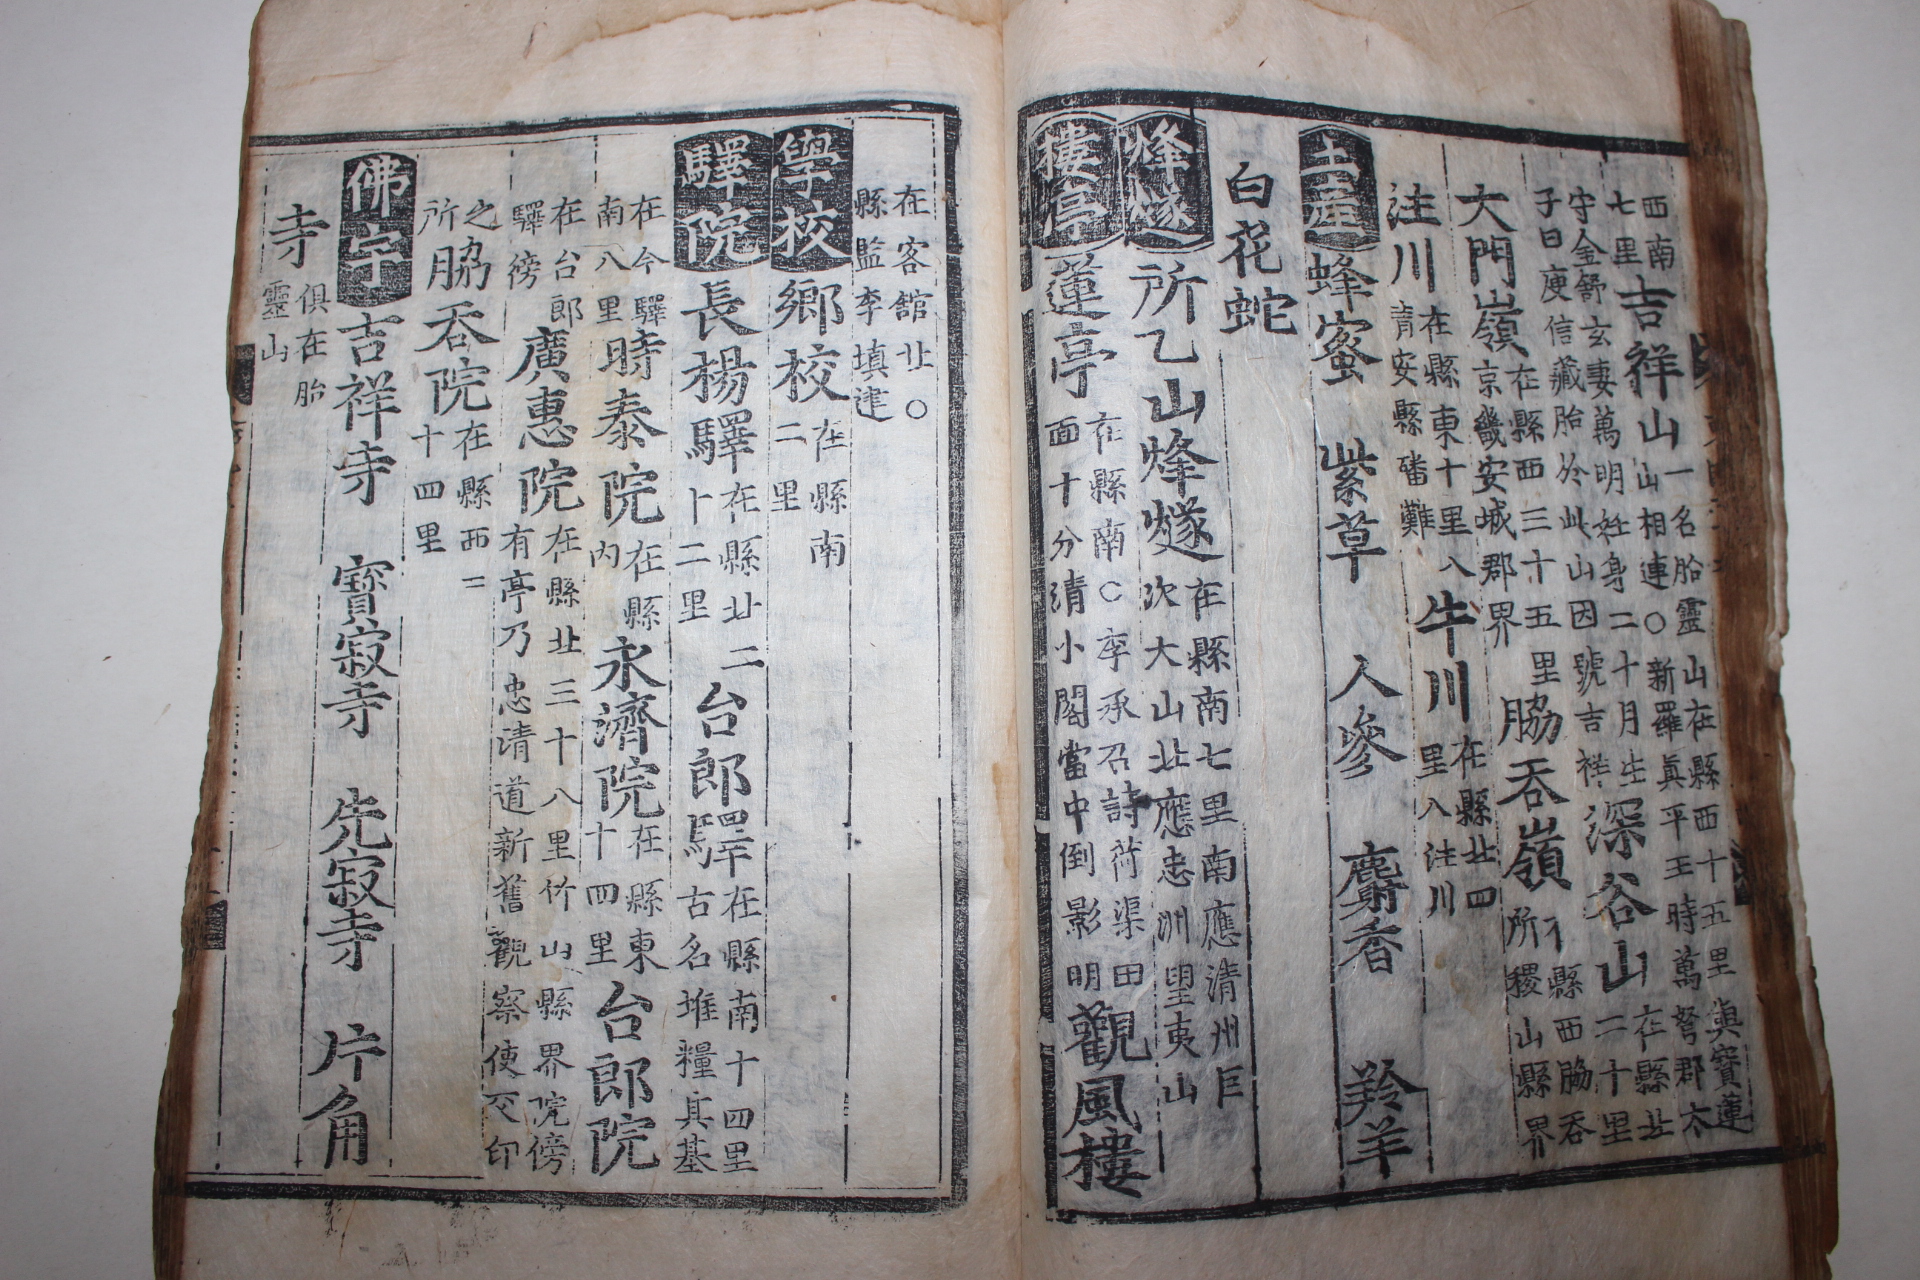 西南
七里
吉祥山
一名胎靈山在縣西十五里與寶蓮
山相連○新羅眞平王時萬弩郡太
守金舒玄妻萬明妊身二十月生
子曰庾信藏胎於此山因號吉祥
深谷山
在縣北
二十里
大門嶺
在縣西三十五里
京畿安城郡界
脇呑嶺
在縣西脇呑
所稷山縣界
注川
在縣東十里八
青安縣磻灘
牛川
在縣北四
里入注川
土産 蜂蜜 紫草 人參 麝香 羚羊
白花蛇
烽燧 所乙山烽燧
在縣南七里南應清州巨
次大山北應忠州望夷山
樓亭 蓮亭
在縣南○李承召詩荷渠田
面十分清小閣當中倒影明
觀風樓
在客舘北○
縣監李塡建
學校 鄉校
在縣南
二里
驛院 長楊驛
在縣北二
十二里
台郎驛
在縣南十四里
古名堆糧其基
在今驛
南八里
時泰院
在縣
內
永濟院
在縣東
十四里
台郎院
在台郎
驛傍
廣惠院
在縣北三十八里竹山縣界院傍
有亭乃忠清道新舊觀察使交印
之
所
脇呑院
在縣西二
十四里
佛宇 吉祥寺 寶寂寺 先寂寺 片角
寺
俱在胎
靈山